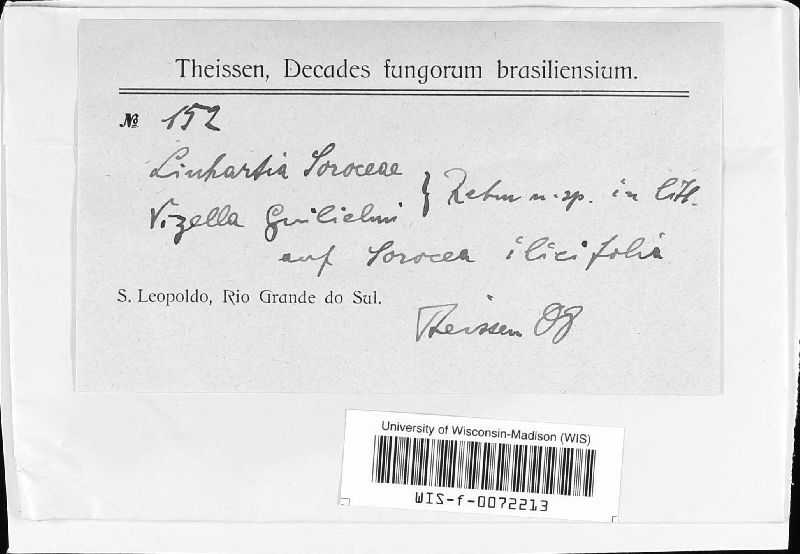 Theissen, Decades fungorum brasiliensium.
№ 152
Linhartia Soroceae
Vizella Guilielmi } Rehm n. sp. in litt.
auf Sorocea ilicifolia
S. Leopoldo, Rio Grande do Sul.
Theissen 08
University of Wisconsin-Madison (WIS)
WIS-f-0072213